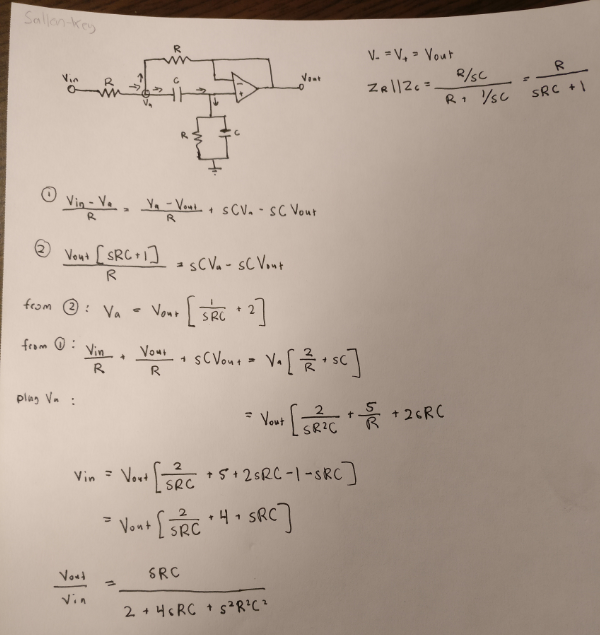 Sallen-key
R
Vin R Va C Vout
- +
R C
V- = V+ = Vout
ZR||Zc = (R/sC)/(R + 1/sC) = R/(sRC + 1)
① (Vin - Va)/R = (Va - Vout)/R + sCVa - sCVout
② Vout[sRC+1]/R = sCVa - sCVout
from ②: Va = Vout[1/sRC + 2]
from ①: Vin/R + Vout/R + sCVout = Va[2/R + sC]
plug Va :
= Vout[2/sR²C + 5/R + 2sRC
Vin = Vout[2/sRC + 5 + 2sRC - 1 - sRC]
= Vout[2/sRC + 4 + sRC]
Vout/Vin = sRC/(2 + 4sRC + s²R²C²)